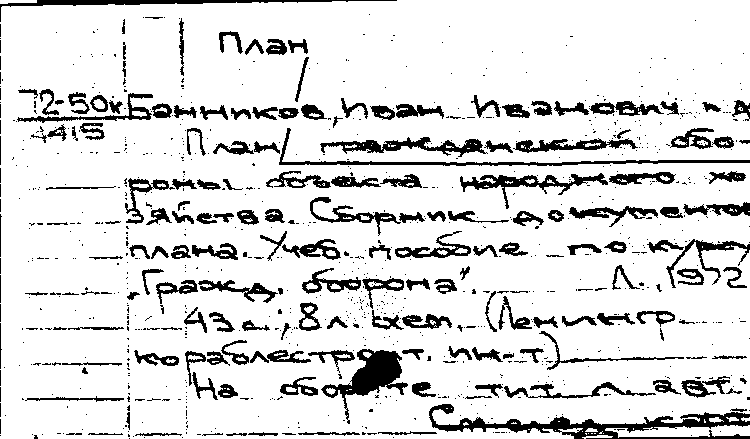 План
72-50к Банников, Иван Иванович и д
4415 План гражданской обо-
роны объекта народного хо
зяйства. Сборник документов
плана. Учеб. пособие по курсу
"Гражд. оборона". Л., 1972
43 с.; 8 л. схем. (Ленингр.
кораблестроит. ин-т)
На обороте тит. л. авт.:
См след. карт